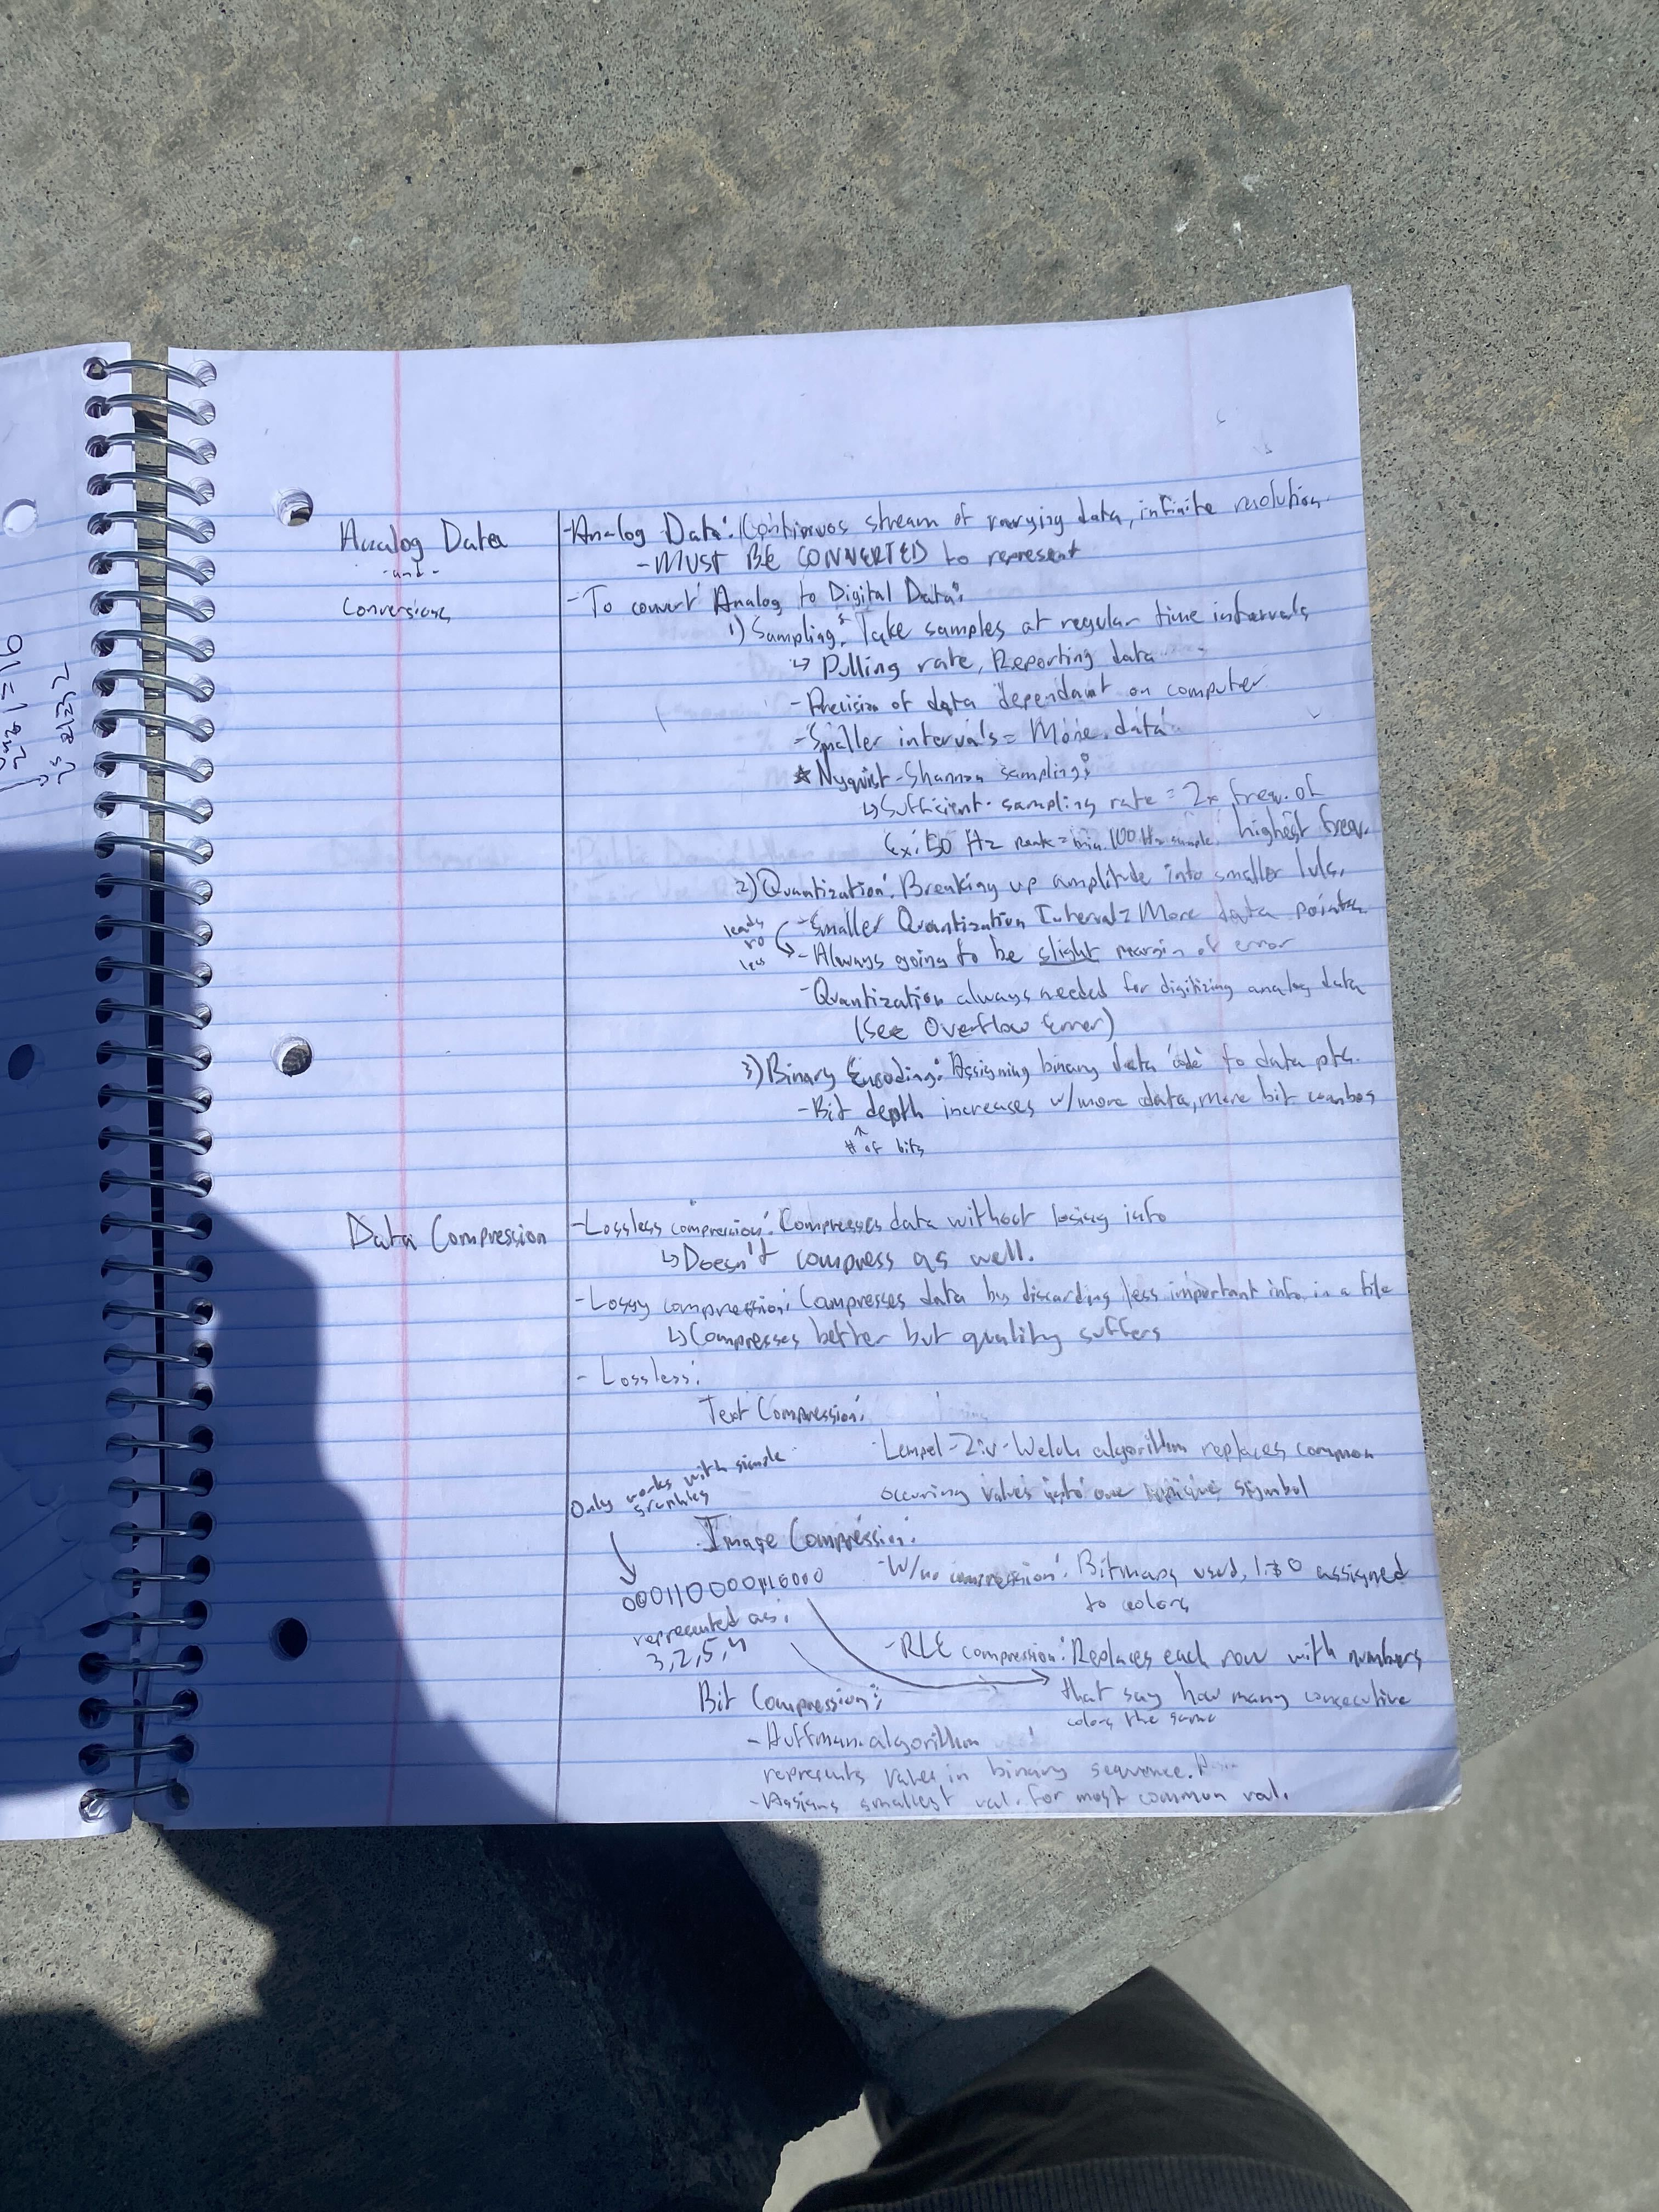 Analog Data
-and-
Conversions
-Analog Data: Continuos stream of varying data, infinite resolution
-MUST BE CONVERTED to represent
-To convert Analog to Digital Data:
1) Sampling: Take samples at regular time intervals
↳ Pulling rate, Reporting data
-Precision of data dependant on computer
-Smaller intervals = More data
★ Nyquist-Shannon sampling:
↳ Sufficient sampling rate = 2x freq. of
highest freq.
Ex: 50 Hz peak = min. 100 Hz sample
2) Quantization: Breaking up amplitude into smaller lvls.
-Smaller Quantization Interval = More data points
leads
to
less
-Always going to be slight margin of error
-Quantization always needed for digitizing analog data
(See Overflow Error)
3) Binary Encoding: Assigning binary data code to data pts.
-Bit depth increases w/more data, more bit combos
↑
# of bits
Data Compression
-Lossless compression: Compresses data without losing info
↳ Doesn't compress as well.
-Lossy compression: Compresses data by discarding less important info in a file
↳ Compresses better but quality suffers
- Lossless:
Text Compression:
-Lempel-Ziv-Welch algorithm replaces common
occuring values into one symbol
Only works with simple
graphics
Image Compression:
-W/no compression: Bitmaps used, 1 & 0 assigned
to colors
represented as:
3,2,5,4
-RLE compression: Replaces each row with numbers
that say how many consecutive
colors the same
Bit Compression:
-Huffman algorithm
represents values in binary sequence.
-Assigns smallest val. for most common val.